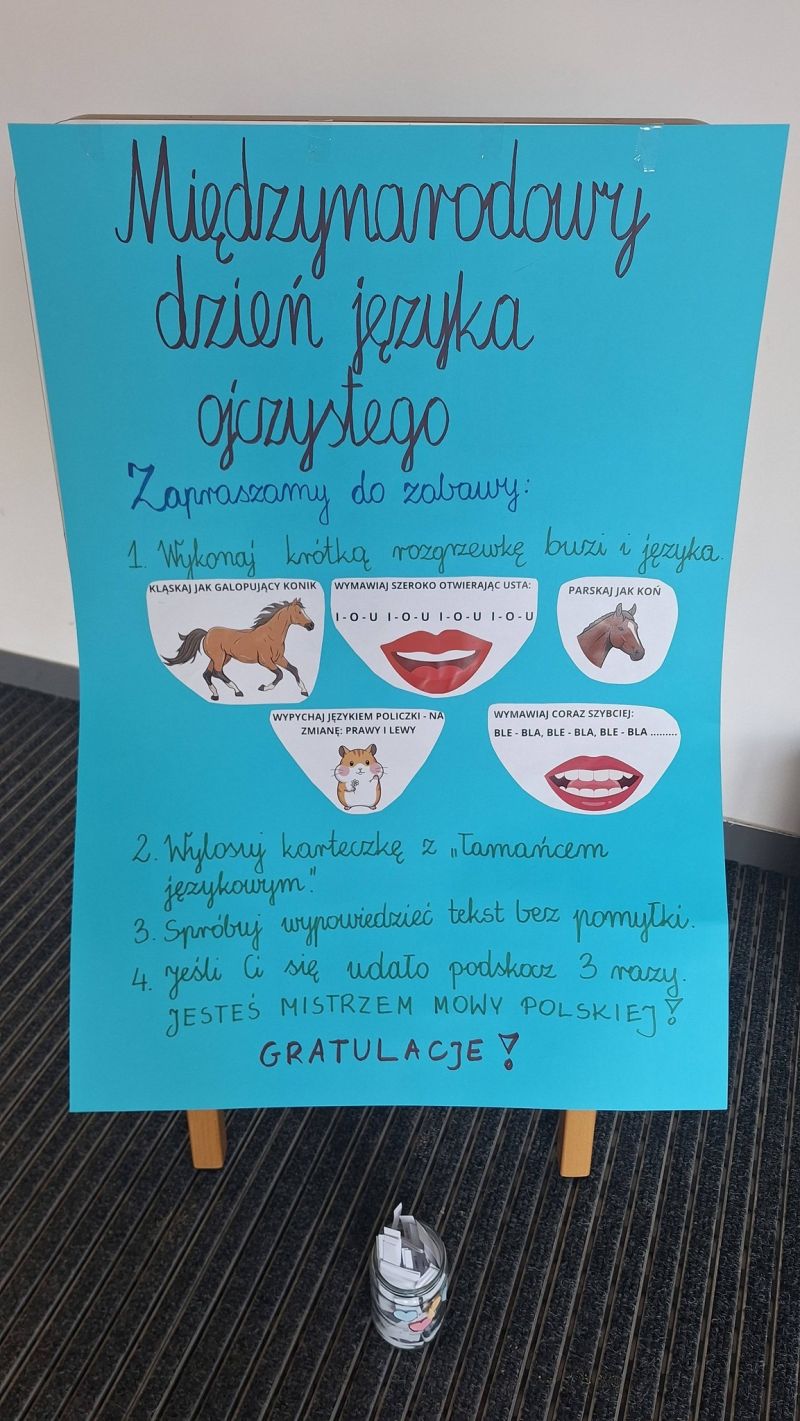 Międzynarodowy
dzień języka
ojczystego
Zapraszamy do zabawy:
1. Wykonaj krótką rozgrzewkę buzi i języka.
KLĄSKAJ JAK GALOPUJĄCY KONIK
WYMAWIAJ SZEROKO OTWIERAJĄC USTA:
I - O - U I - O - U I - O - U I - O - U
PARSKAJ JAK KOŃ
WYPYCHAJ JĘZYKIEM POLICZKI - NA
ZMIANĘ: PRAWY I LEWY
WYMAWIAJ CORAZ SZYBCIEJ:
BLE - BLA, BLE - BLA, BLE - BLA .........
2. Wylosuj karteczkę z „Łamańcem
językowym".
3. Spróbuj wypowiedzieć tekst bez pomyłki.
4. Jeśli Ci się udało podskocz 3 razy.
JESTEŚ MISTRZEM MOWY POLSKIEJ!
GRATULACJE!